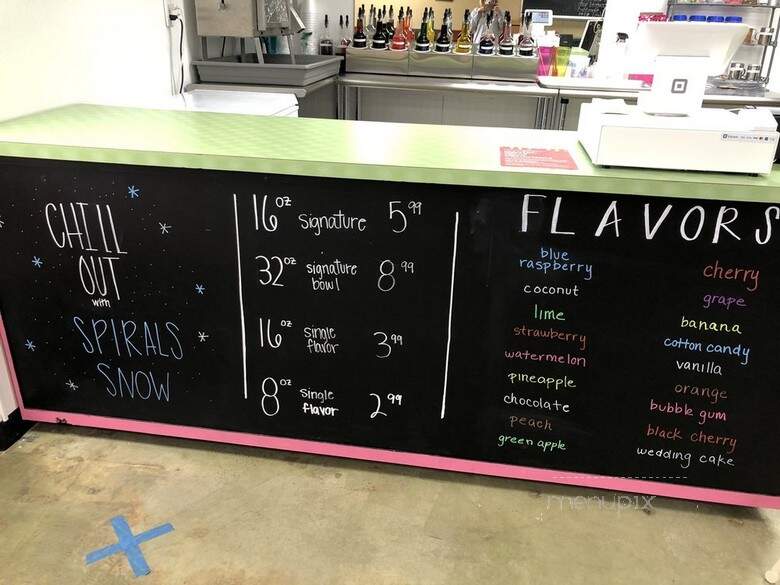 CHILL
OUT
with
SPIRALS
SNOW
16oz signature 5.99
32oz signature bowl 8.99
16oz single flavor 3.99
8oz single flavor 2.99
FLAVORS
blue raspberry
coconut
lime
strawberry
watermelon
pineapple
chocolate
peach
green apple
cherry
grape
banana
cotton candy
vanilla
orange
bubble gum
black cherry
wedding cake
menupix